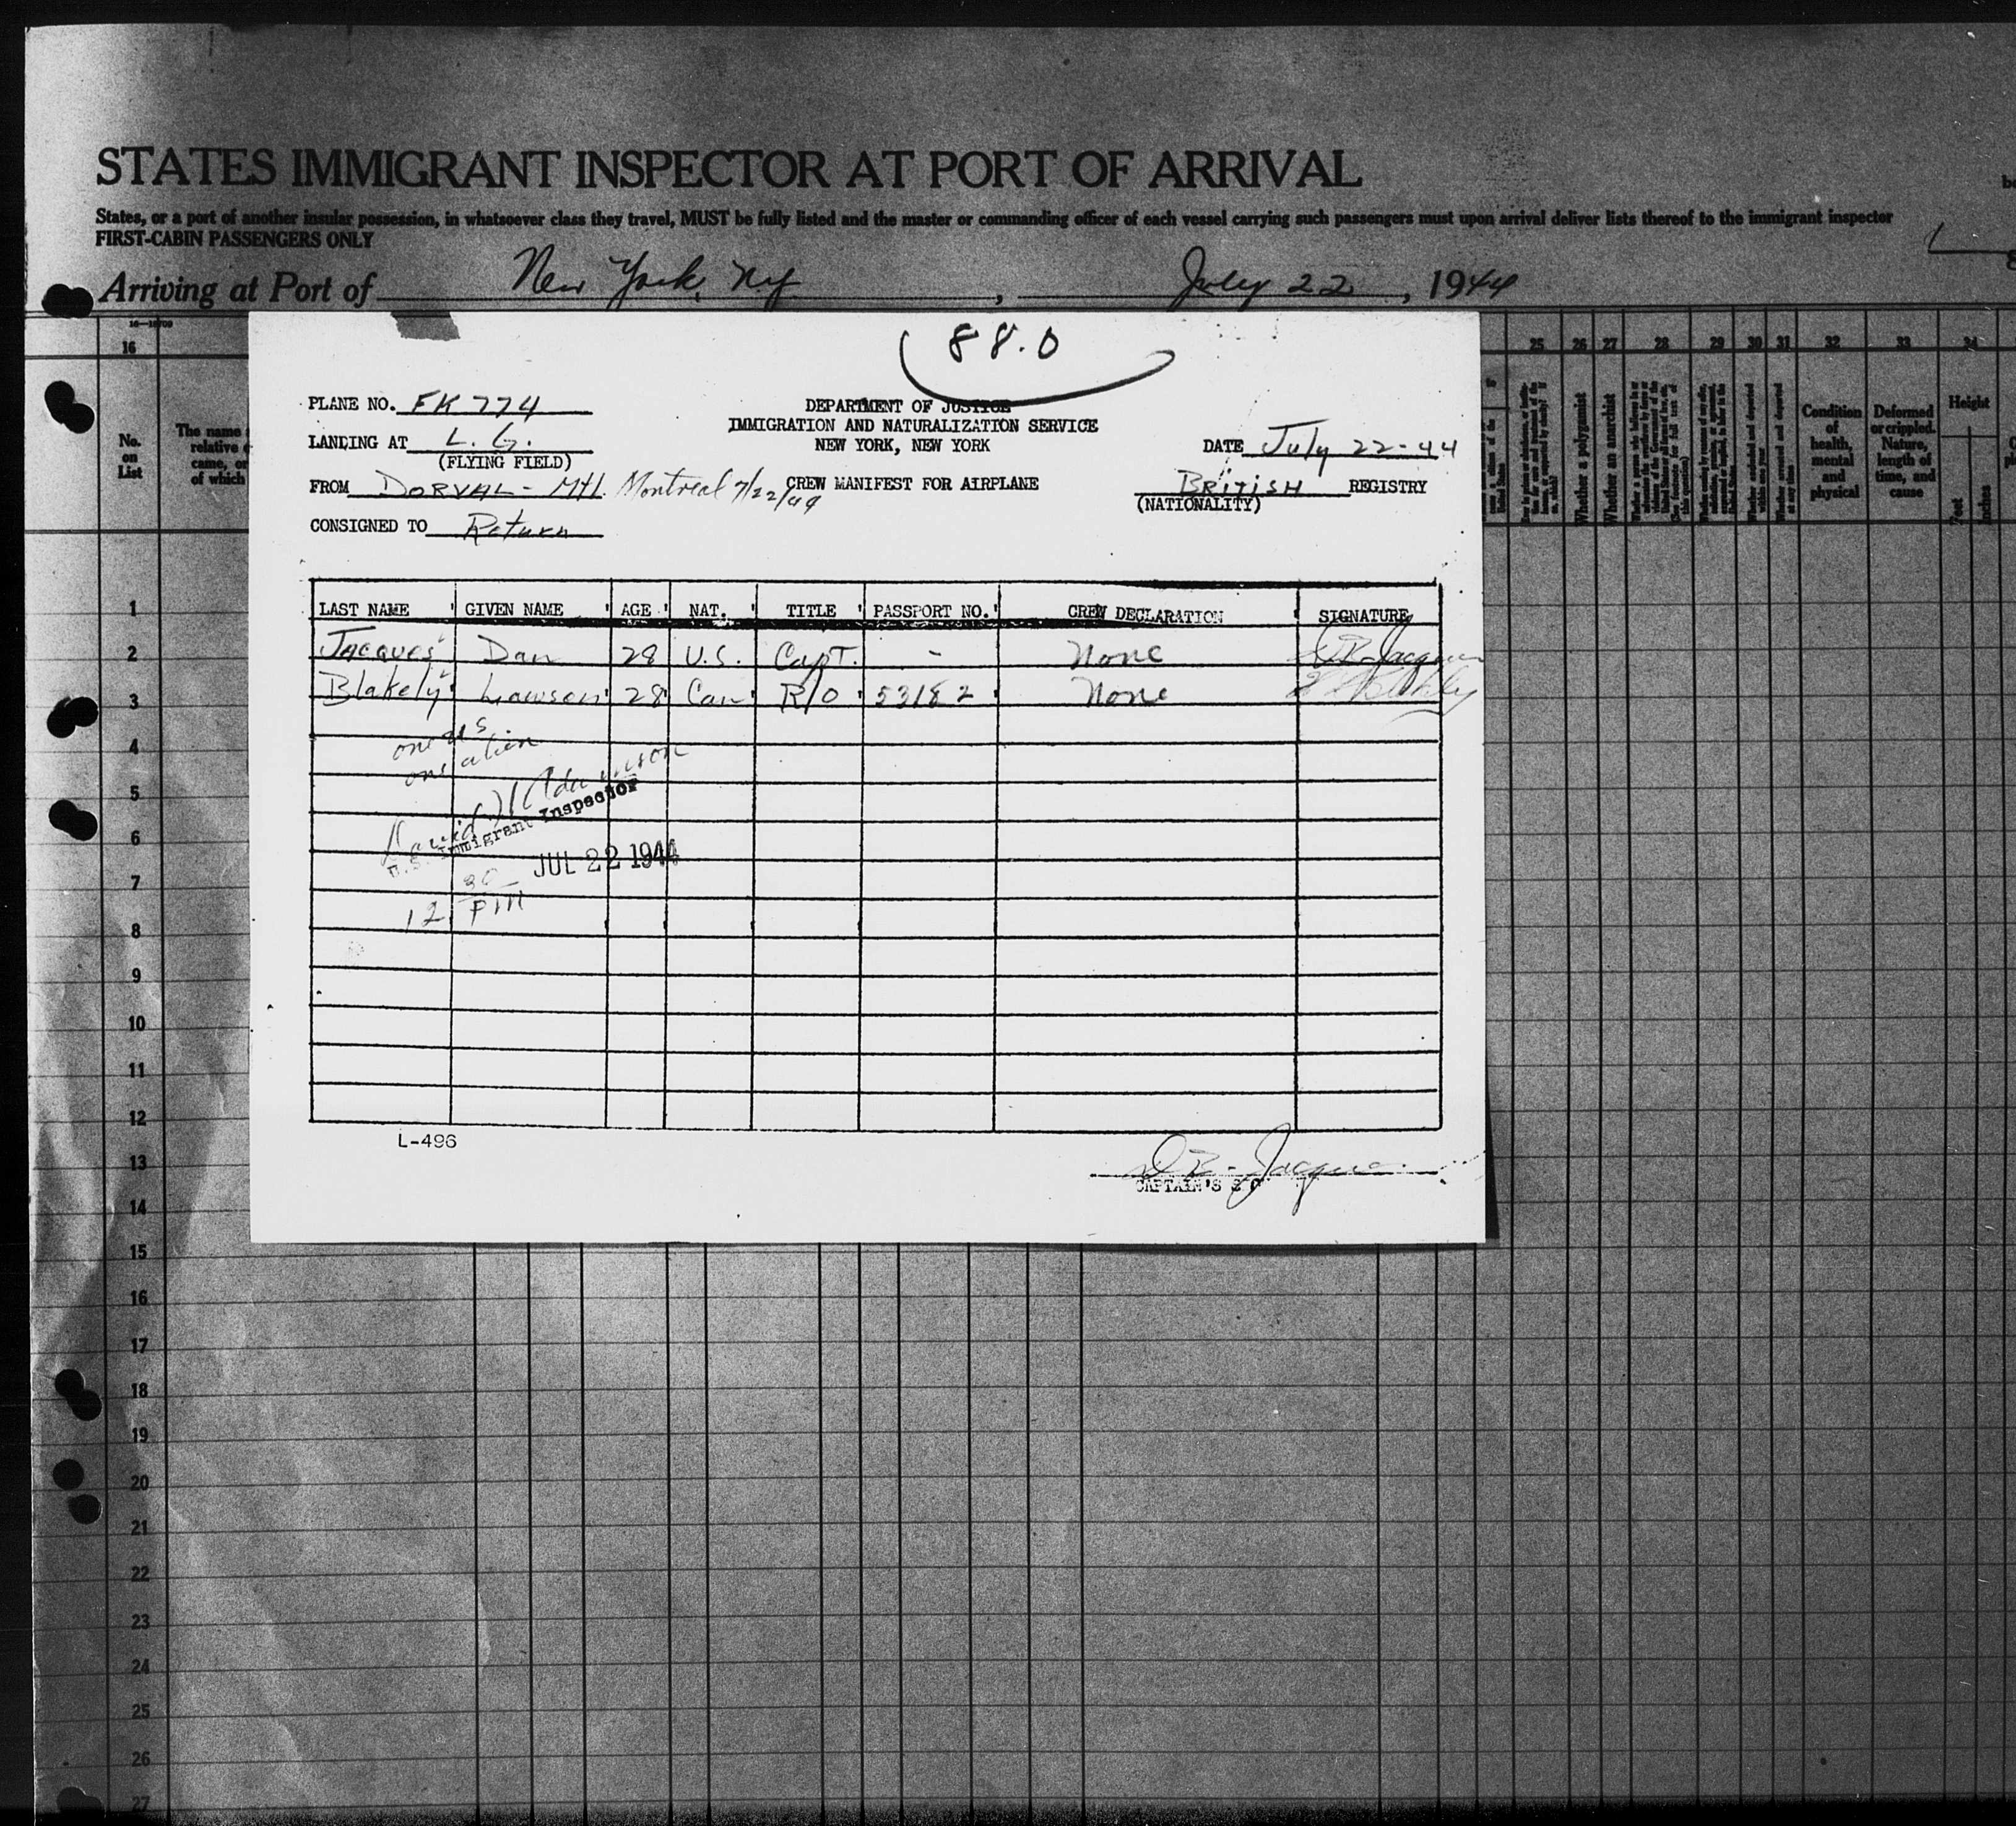 STATES IMMIGRANT INSPECTOR AT PORT OF ARRIVAL
States, or a port of another insular possession, in whatsoever class they travel, MUST be fully listed and the master or commanding officer of each vessel carrying such passengers must upon arrival deliver lists thereof to the immigrant inspector
FIRST-CABIN PASSENGERS ONLY
Arriving at Port of New York, NY , July 22 , 1944
16 25 26 27 28 29 30 31 32 33 34
No. on List
The name
relative
came, or
of which
Whether a polygamist
Whether an anarchist
Condition of health, mental and physical
Deformed or crippled. Nature, length of time, and cause
Height
Feet Inches
88.0
PLANE NO. FK 774
DEPARTMENT OF JUSTICE
IMMIGRATION AND NATURALIZATION SERVICE
NEW YORK, NEW YORK
LANDING AT L. G.
(FLYING FIELD)
DATE July 22-44
FROM DORVAL - Mtl. Montreal 7/22/44 CREW MANIFEST FOR AIRPLANE
BRITISH REGISTRY
(NATIONALITY)
CONSIGNED TO Return
LAST NAME GIVEN NAME AGE NAT. TITLE PASSPORT NO. CREW DECLARATION SIGNATURE
Jacques Dan 28 U.S. Capt. - None D B Jacques
Blakely Lawson 28 Can R/O 53182 None Blakely
one US
one alien
David Adamson
U.S. Immigrant Inspector
JUL 22 1944
12 30 PM
L-496
D B - Jacques
CAPTAIN'S
1
2
3
4
5
6
7
8
9
10
11
12
13
14
15
16
17
18
19
20
21
22
23
24
25
26
27